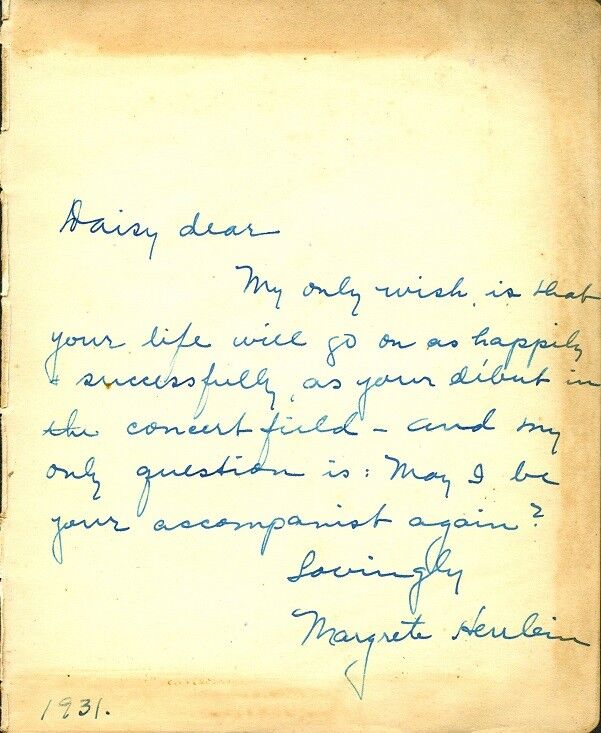 Daisy dear
My only wish, is that
your life will go on as happily
& successfully, as your début in
the concert field - and my
only question is: May I be
your accompanist again?
Lovingly
Margrete Herrlein
1931.